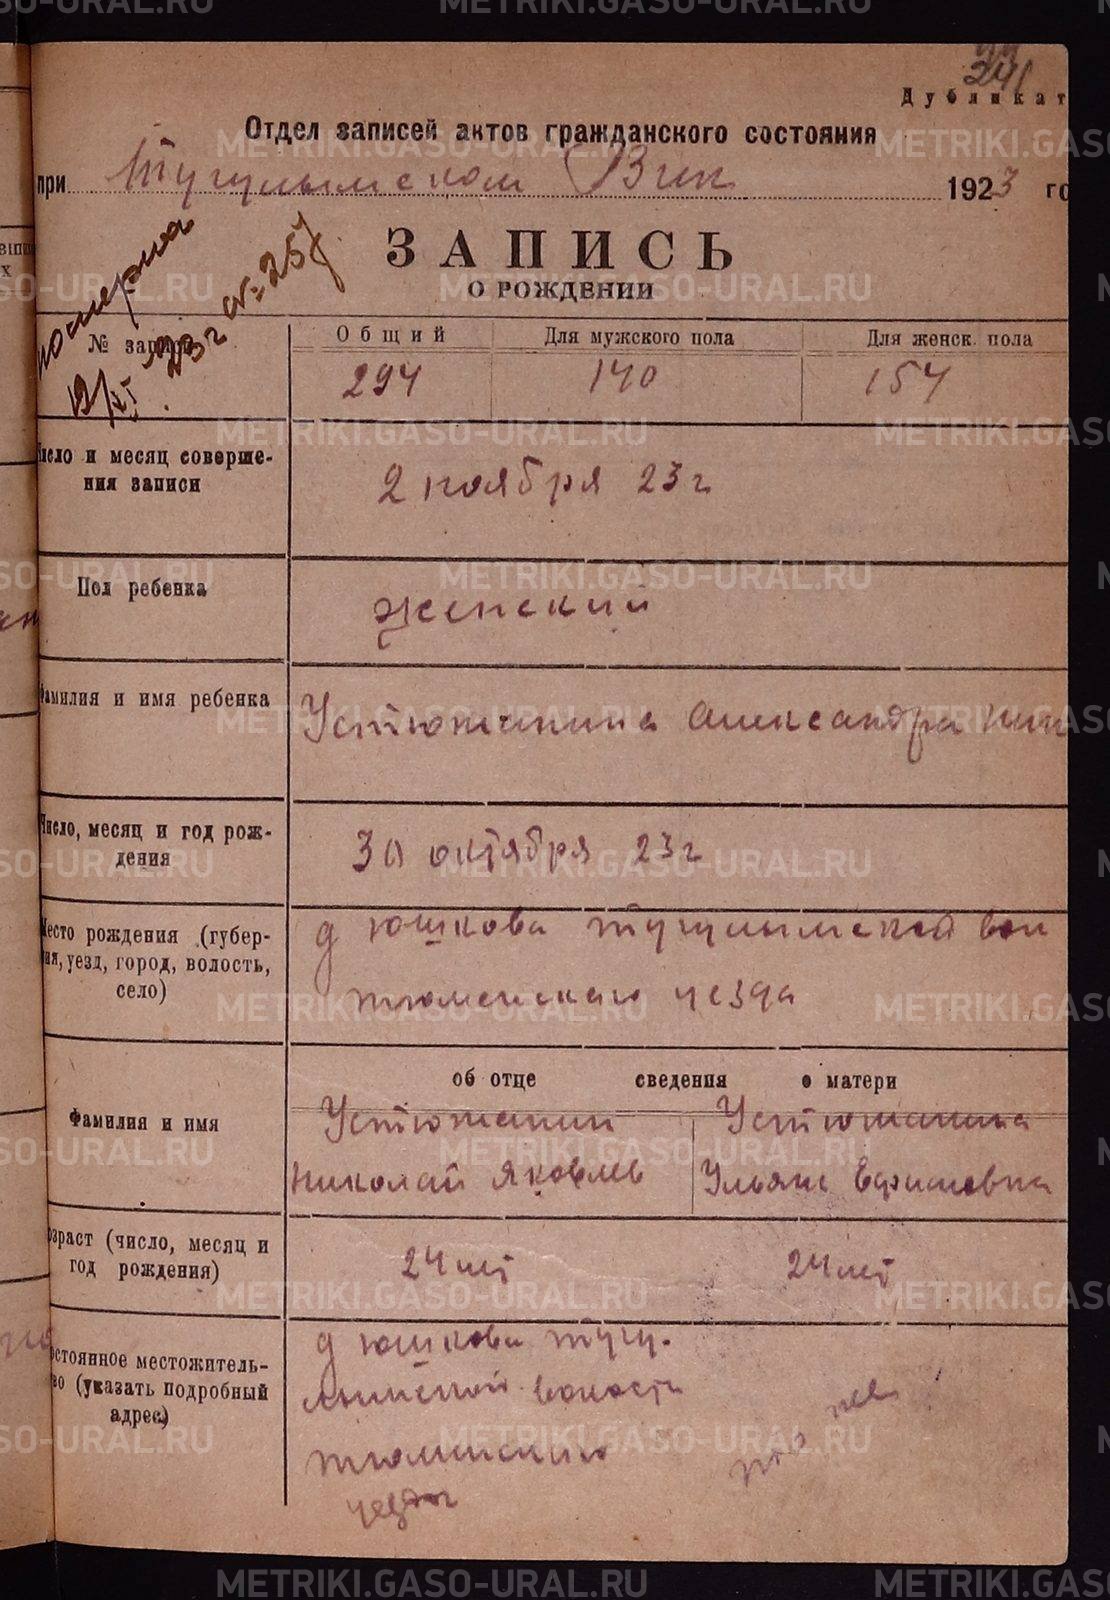 241
Дубликат
Отдел записей актов гражданского состояния
при Тугулымском Вик 1923 го
ЗАПИСЬ
О РОЖДЕНИИ
померла
12/XI 23г № 257
№ записи
Общий
Для мужского пола
Для женск. пола
294
140
154
Число и месяц соверше-
ния записи
2 ноября 23 г
Пол ребенка
женский
Фамилия и имя ребенка
Устюжанина Александра Ник
Число, месяц и год рож-
дения
30 октября 23 г
Место рождения (губер-
ния, уезд, город, волость,
село)
д Юшкова Тугулымской вол
Тюменского уезда
об отце сведения о матери
Фамилия и имя
Устюжанин
Николай Яковлев
Устюжанина
Ульяна Ефимовна
Возраст (число, месяц и
год рождения)
24 лет
24 лет
Постоянное местожитель-
ство (указать подробный
адрес)
д Юшкова Тугу-
лымской волости
Тюменского
уезда
METRIKI.GASO-URAL.RU